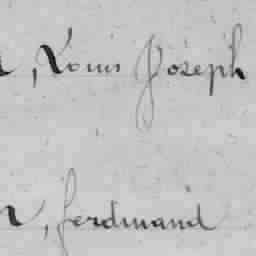 , Louis Joseph
, ferdinand